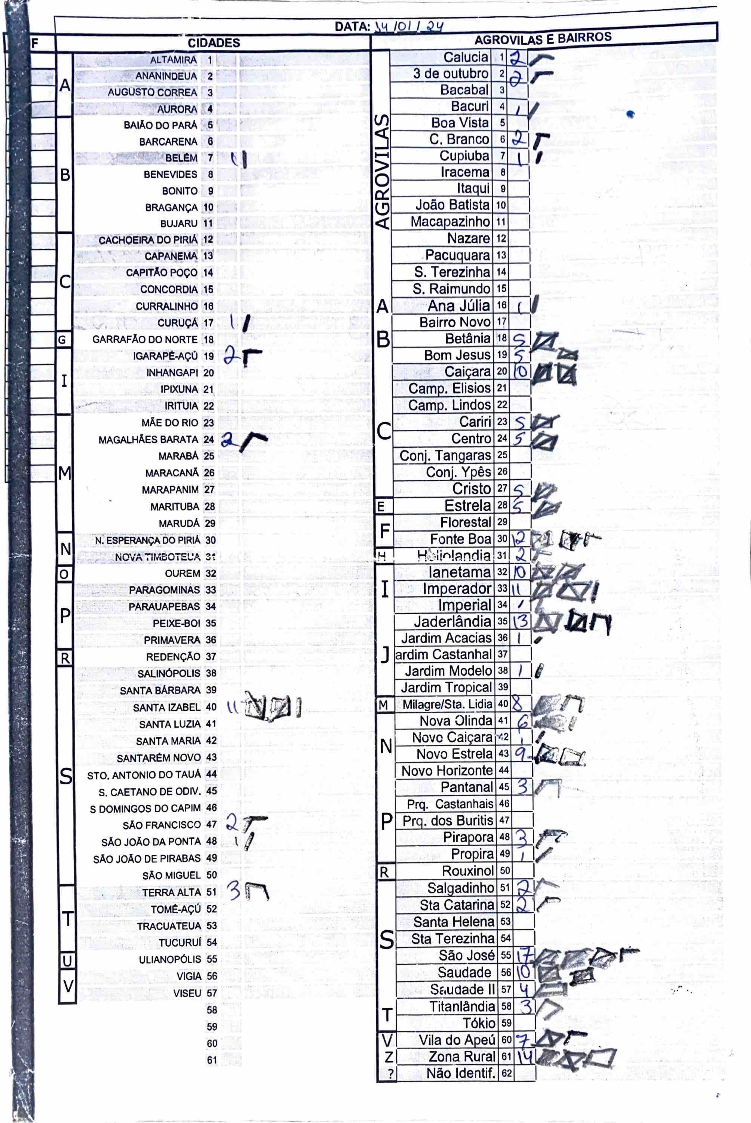 DATA: 14/01/24
F
CIDADES
A
ALTAMIRA 1
ANANINDEUA 2
AUGUSTO CORREA 3
AURORA 4
B
BAIÃO DO PARÁ 5
BARCARENA 6
BELÉM 7
BENEVIDES 8
BONITO 9
BRAGANÇA 10
BUJARU 11
C
CACHOEIRA DO PIRIÁ 12
CAPANEMA 13
CAPITÃO POÇO 14
CONCORDIA 15
CURRALINHO 16
CURUÇÁ 17 1
G
GARRAFÃO DO NORTE 18
I
IGARAPÉ-AÇÚ 19 2
INHANGAPI 20
IPIXUNA 21
IRITUIA 22
M
MÃE DO RIO 23
MAGALHÃES BARATA 24 2
MARABÁ 25
MARACANÃ 26
MARAPANIM 27
MARITUBA 28
MARUDÁ 29
N
N. ESPERANÇA DO PIRIÁ 30
NOVA TIMBOTEUA 31
O
OUREM 32
P
PARAGOMINAS 33
PARAUAPEBAS 34
PEIXE-BOI 35
PRIMAVERA 36
R
REDENÇÃO 37
S
SALINÓPOLIS 38
SANTA BÁRBARA 39
SANTA IZABEL 40 11
SANTA LUZIA 41
SANTA MARIA 42
SANTARÉM NOVO 43
STO. ANTONIO DO TAUÁ 44
S. CAETANO DE ODIV. 45
S DOMINGOS DO CAPIM 46
SÃO FRANCISCO 47 2
SÃO JOÃO DA PONTA 48 1
SÃO JOÃO DE PIRABAS 49
SÃO MIGUEL 50
T
TERRA ALTA 51 3
TOMÉ-AÇÚ 52
TRACUATEUA 53
TUCURUÍ 54
U
ULIANÓPOLIS 55
V
VIGIA 56
VISEU 57
58
59
60
61
AGROVILAS E BAIRROS
AGROVILAS
Calucia 1 2
3 de outubro 2 2
Bacabal 3
Bacuri 4 1
Boa Vista 5
C. Branco 6 2
Cupiuba 7 1
Iracema 8
Itaqui 9
João Batista 10
Macapazinho 11
Nazare 12
Pacuquara 13
S. Terezinha 14
S. Raimundo 15
A
Ana Júlia 16 1
Bairro Novo 17
B
Betânia 18 5
Bom Jesus 19 5
Caiçara 20 10
Camp. Elisios 21
Camp. Lindos 22
C
Cariri 23 5
Centro 24 5
Conj. Tangaras 25
Conj. Ypês 26
Cristo 27 5
E
Estrela 28 5
F
Florestal 29
Fonte Boa 30 12
H
Heliolandia 31 2
I
Ianetama 32 10
Imperador 33 11
Imperial 34 1
J
Jaderlândia 35 13
Jardim Acacias 36 1
ardim Castanhal 37
Jardim Modelo 38 1
Jardim Tropical 39
M
Milagre/Sta. Lidia 40 8
N
Nova Olinda 41 6
Novo Caiçara 42 1
Novo Estrela 43 9
Novo Horizonte 44
P
Pantanal 45 3
Prq. Castanhais 46
Prq. dos Buritis 47
Pirapora 48 3
Propira 49 1
R
Rouxinol 50
S
Salgadinho 51 2
Sta Catarina 52 2
Santa Helena 53
Sta Terezinha 54
São José 55 17
Saudade 56 10
Saudade II 57 4
T
Titanlândia 58 3
Tókio 59
V
Vila do Apeú 60 7
Z
Zona Rural 61 14
?
Não Identif. 62